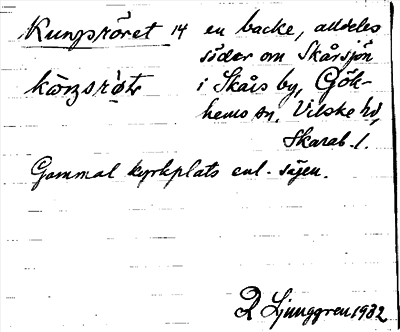 Kungsröret 14 en backe, alldeles
söder om Skårsjön
i Skårs by, Gök-
hems sn, Vilske hd,
Skarab. l.
Gammal kyrkplats enl. sägen.
R Ljunggren 1932